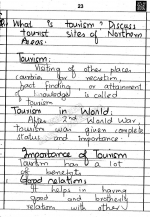 23
Q What is tourism? Discuss
tourist sites of Northern
Areas.
Tourism:
Visiting of other places
countries for recreation,
fact finding, or attainment
of knowledge called
Tourism
Tourism in World:
After 2nd World War
tourism was given complete
status and importance.
Importance of Tourism
Tourism has a lot
of benefits.
Good relations
It helps in having
good and brotherly
relation with others